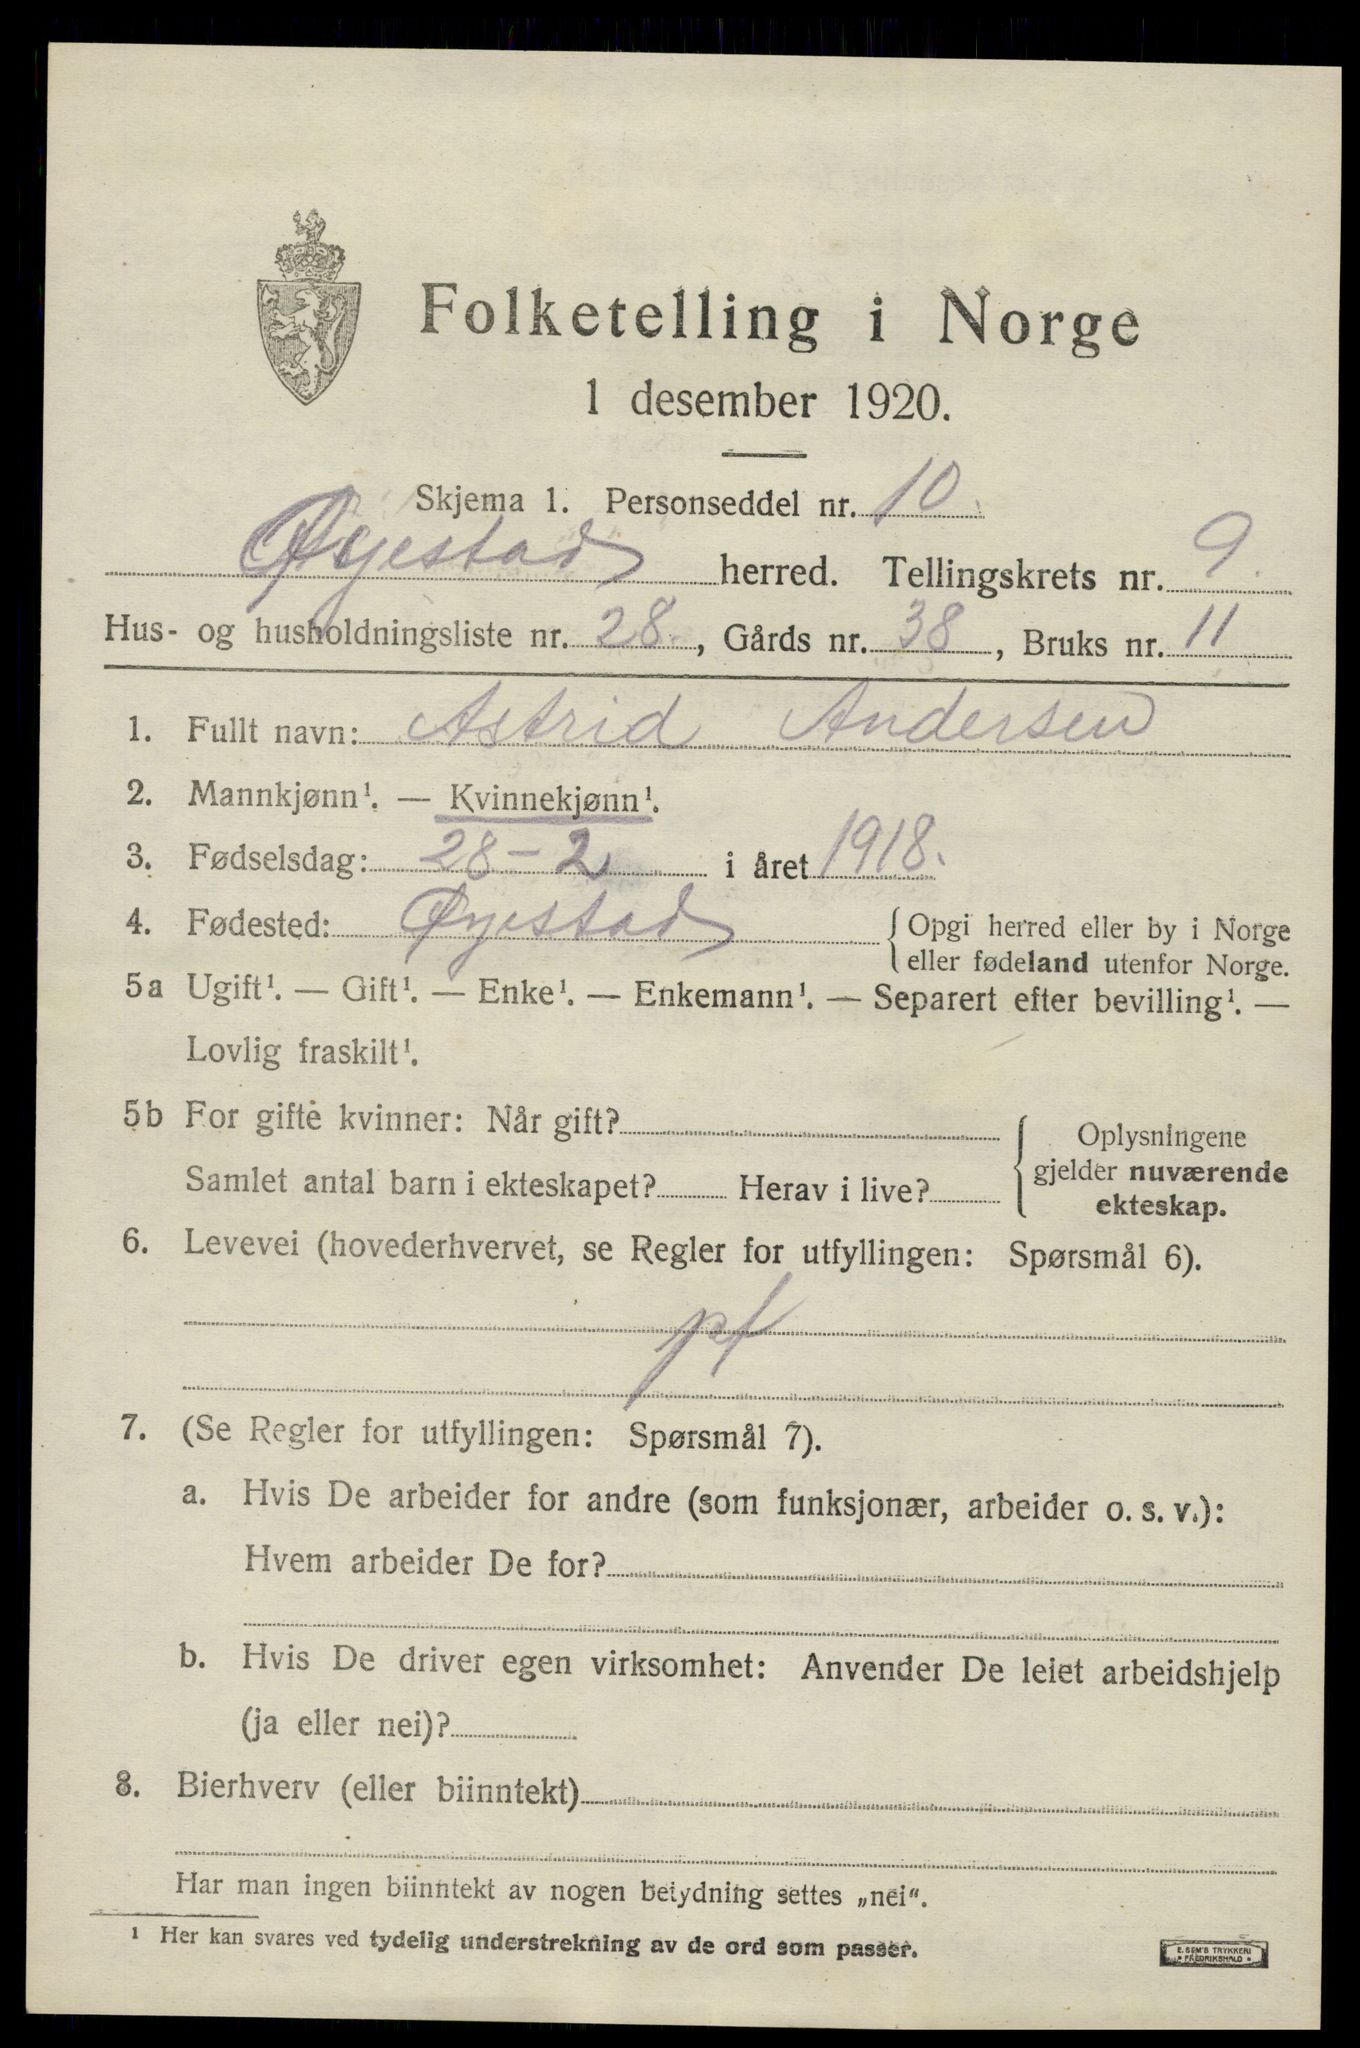 Folketelling i Norge
1 desember 1920.
Skjema 1. Personseddel nr. 10.
Øyestad herred. Tellingskrets nr. 9
Hus- og husholdningsliste nr. 28, Gårds nr. 38, Bruks nr. 11
1. Fullt navn: Astrid Andersen
2. Mannkjønn¹. — Kvinnekjønn¹.
3. Fødselsdag: 28-2 i året 1918.
4. Fødested: Øyestad { Opgi herred eller by i Norge
eller fødeland utenfor Norge.
5a Ugift¹. — Gift¹. — Enke¹. — Enkemann¹. — Separert efter bevilling¹. —
Lovlig fraskilt¹.
5b For gifte kvinner: Når gift?
Samlet antal barn i ekteskapet? Herav i live?
{ Oplysningene
gjelder nuværende
ekteskap.
6. Levevei (hovederhvervet, se Regler for utfyllingen: Spørsmål 6).
pf
7. (Se Regler for utfyllingen: Spørsmål 7).
a. Hvis De arbeider for andre (som funksjonær, arbeider o. s. v.):
Hvem arbeider De for?
b. Hvis De driver egen virksomhet: Anvender De leiet arbeidshjelp
(ja eller nei)?
8. Bierhverv (eller biinntekt)
Har man ingen biinntekt av nogen betydning settes „nei".
¹ Her kan svares ved tydelig understrekning av de ord som passer.
E. SEM'S TRYKKERI
FREDRIKSHALD